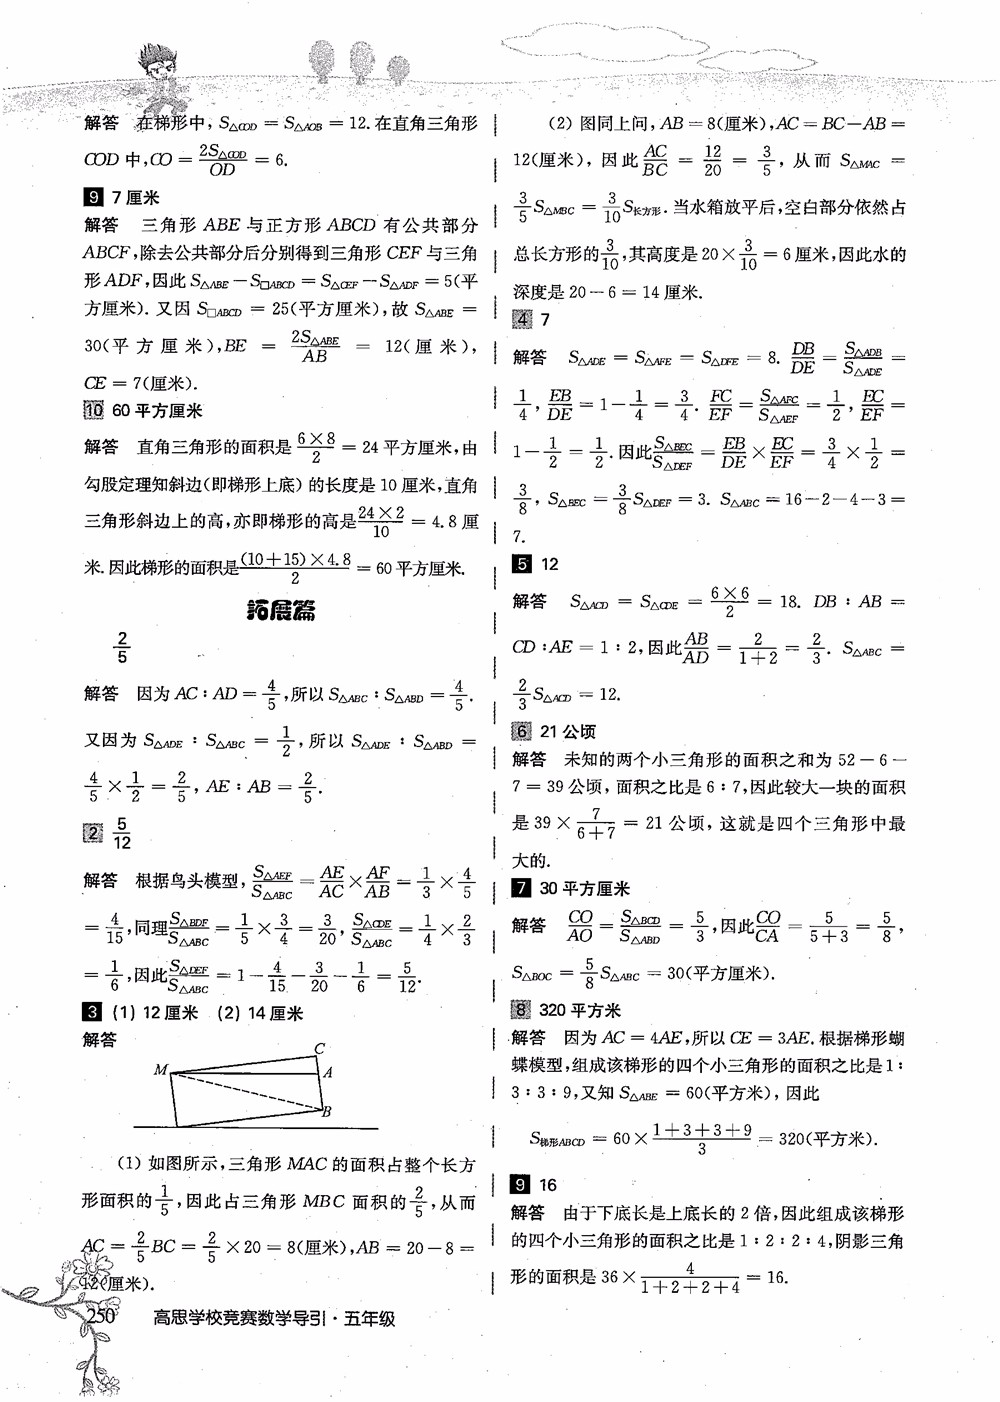 解答 在梯形中, S△COD = S△AOB = 12. 在直角三角形
COD 中, CO = 2S△COD/OD = 6.
9 7 厘米
解答 三角形 ABE 与正方形 ABCD 有公共部分
ABCF, 除去公共部分后分别得到三角形 CEF 与三角
形 ADF, 因此 S△ABE − S□ABCD = S△CEF − S△ADF = 5(平
方厘米). 又因 S□ABCD = 25(平方厘米), 故 S△ABE =
30(平方厘米), BE = 2S△ABE/AB = 12(厘米),
CE = 7(厘米).
10 60 平方厘米
解答 直角三角形的面积是 6×8/2 = 24 平方厘米, 由
勾股定理知斜边(即梯形上底)的长度是 10 厘米, 直角
三角形斜边上的高, 亦即梯形的高是 24×2/10 = 4.8 厘
米. 因此梯形的面积是 (10+15)×4.8/2 = 60 平方厘米.
拓展篇
2/5
解答 因为 AC : AD = 4/5, 所以 S△ABC : S△ABD = 4/5.
又因为 S△ADE : S△ABC = 1/2, 所以 S△ADE : S△ABD =
4/5 × 1/2 = 2/5, AE : AB = 2/5.
2 5/12
解答 根据鸟头模型, S△AEF/S△ABC = AE/AC × AF/AB = 1/3 × 4/5
= 4/15, 同理 S△BDF/S△ABC = 1/5 × 3/4 = 3/20, S△CDE/S△ABC = 1/4 × 2/3
= 1/6, 因此 S△DEF/S△ABC = 1 − 4/15 − 3/20 − 1/6 = 5/12.
3 (1) 12 厘米 (2) 14 厘米
解答
C
M
A
B
(1) 如图所示, 三角形 MAC 的面积占整个长方
形面积的 1/5, 因此占三角形 MBC 面积的 2/5, 从而
AC = 2/5 BC = 2/5 × 20 = 8(厘米), AB = 20 − 8 =
12(厘米).
250 高思学校竞赛数学导引·五年级
(2) 图同上问, AB = 8(厘米), AC = BC − AB =
12(厘米), 因此 AC/BC = 12/20 = 3/5, 从而 S△MAC =
3/5 S△MBC = 3/10 S长方形. 当水箱放平后, 空白部分依然占
总长方形的 3/10, 其高度是 20 × 3/10 = 6 厘米, 因此水的
深度是 20 − 6 = 14 厘米.
4 7
解答 S△ADE = S△AFE = S△DFE = 8. DB/DE = S△ADB/S△ADE =
1/4, EB/DE = 1 − 1/4 = 3/4. FC/EF = S△AFC/S△AEF = 1/2, EC/EF =
1 − 1/2 = 1/2. 因此 S△BEC/S△DEF = EB/DE × EC/EF = 3/4 × 1/2 =
3/8, S△BEC = 3/8 S△DEF = 3. S△ABC = 16 − 2 − 4 − 3 =
7.
5 12
解答 S△ACD = S△CDE = 6×6/2 = 18. DB : AB =
CD : AE = 1 : 2, 因此 AB/AD = 2/(1+2) = 2/3. S△ABC =
2/3 S△ACD = 12.
6 21 公顷
解答 未知的两个小三角形的面积之和为 52 − 6 −
7 = 39 公顷, 面积之比是 6 : 7, 因此较大一块的面积
是 39 × 7/(6+7) = 21 公顷, 这就是四个三角形中最
大的.
7 30 平方厘米
解答 CO/AO = S△BCD/S△ABD = 5/3, 因此 CO/CA = 5/(5+3) = 5/8,
S△BOC = 5/8 S△ABC = 30(平方厘米).
8 320 平方米
解答 因为 AC = 4AE, 所以 CE = 3AE. 根据梯形蝴
蝶模型, 组成该梯形的四个小三角形的面积之比是 1 :
3 : 3 : 9, 又知 S△ABE = 60(平方米), 因此
S梯形ABCD = 60 × (1+3+3+9)/3 = 320(平方米).
9 16
解答 由于下底长是上底长的 2 倍, 因此组成该梯形
的四个小三角形的面积之比是 1 : 2 : 2 : 4, 阴影三角
形的面积是 36 × 4/(1+2+2+4) = 16.